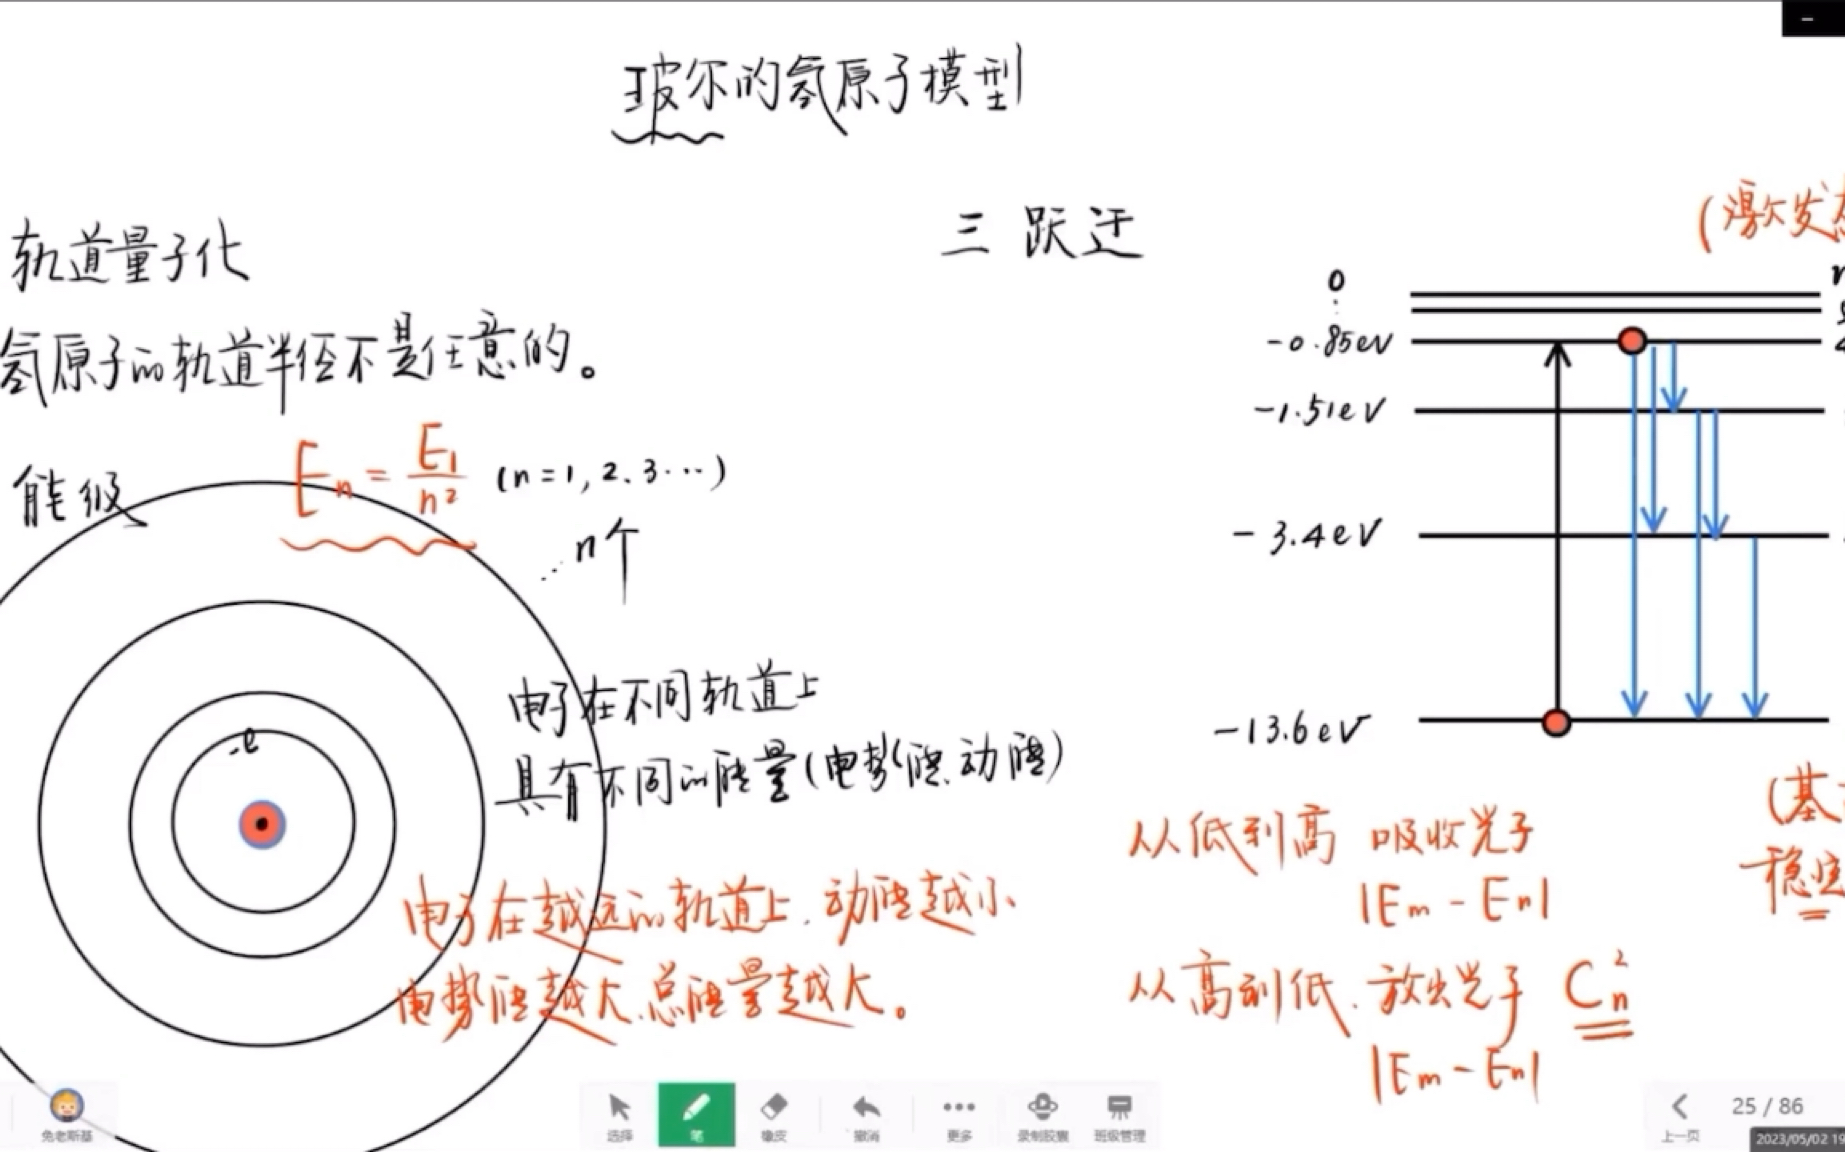 玻尔的氢原子模型
轨道量子化
氢原子的轨道半径不是任意的。
能级
En = E1/n² (n=1,2、3…)
… n个
-e
电子在不同轨道上
具有不同的能量(电势能、动能)
电子在越远的轨道上、动能越小、
电势能越大、总能量越大。
三 跃迁
(激发态
0
-0.85eV
-1.51eV
-3.4eV
-13.6eV
(基
稳定
从低到高 吸收光子
|Em - En|
从高到低、放出光子 C²n
|Em - En|
兔老斯基
选择
笔
橡皮
撤消
更多
录制胶囊
班级管理
上一页
25 / 86
2023/05/02 19